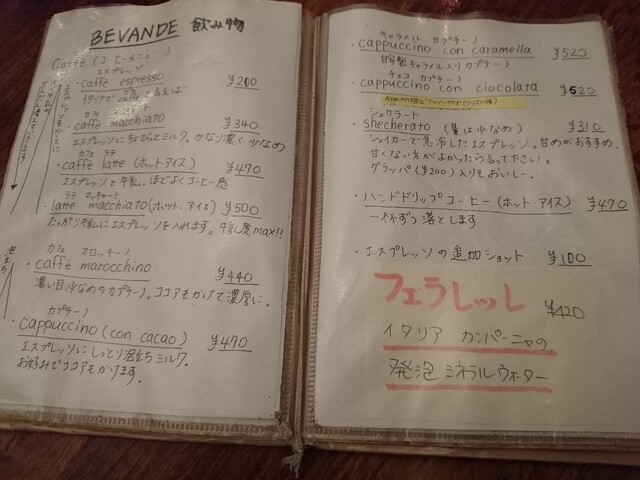 BEVANDE 飲み物
Caffè (コーヒーメニュー)
エスプレッソ
caffè espresso ¥200
イタリアでcaffèと言えば
カフェ マッキャート
caffè macchiato ¥340
エスプレッソにちょびっとミルク。かなり濃く少なめ
カフェ ラテ
caffè latte (ホット・アイス) ¥470
エスプレッソと牛乳。ほどよくコーヒー感
ラテ マッキャート
latte macchiato (ホット・アイス) ¥500
たっぷり牛乳にエスプレッソを入れます。牛乳度max!!
カフェ マロッキーノ
・caffè marocchino ¥440
濃い目少なめのカプチーノ。ココアをかけて濃厚に。
カプチーノ
cappuccino (con cacao) ¥470
エスプレッソにしっとり泡立ちミルク。
お好みでココアをかけます。
キャラメル カプチーノ
・cappuccino con caramella ¥520
自家製キャラメル入りカプチーノ
チョコ カプチーノ
・cappuccino con ciocolata ¥520
シェケラート
・shecherato (量は少なめ) ¥310
シェイカーで急冷したエスプレッソ。甘めがおすすめ。
甘くない方がよかったら言って下さい。
グラッパ(¥200)入りもおいしー。
・ハンドドリップコーヒー(ホット・アイス) ¥470
一杯ずつ落とします
・エスプレッソの追加ショット ¥100
フェラレッレ ¥420
イタリア カンパーニャの
発泡ミネラルウォーター